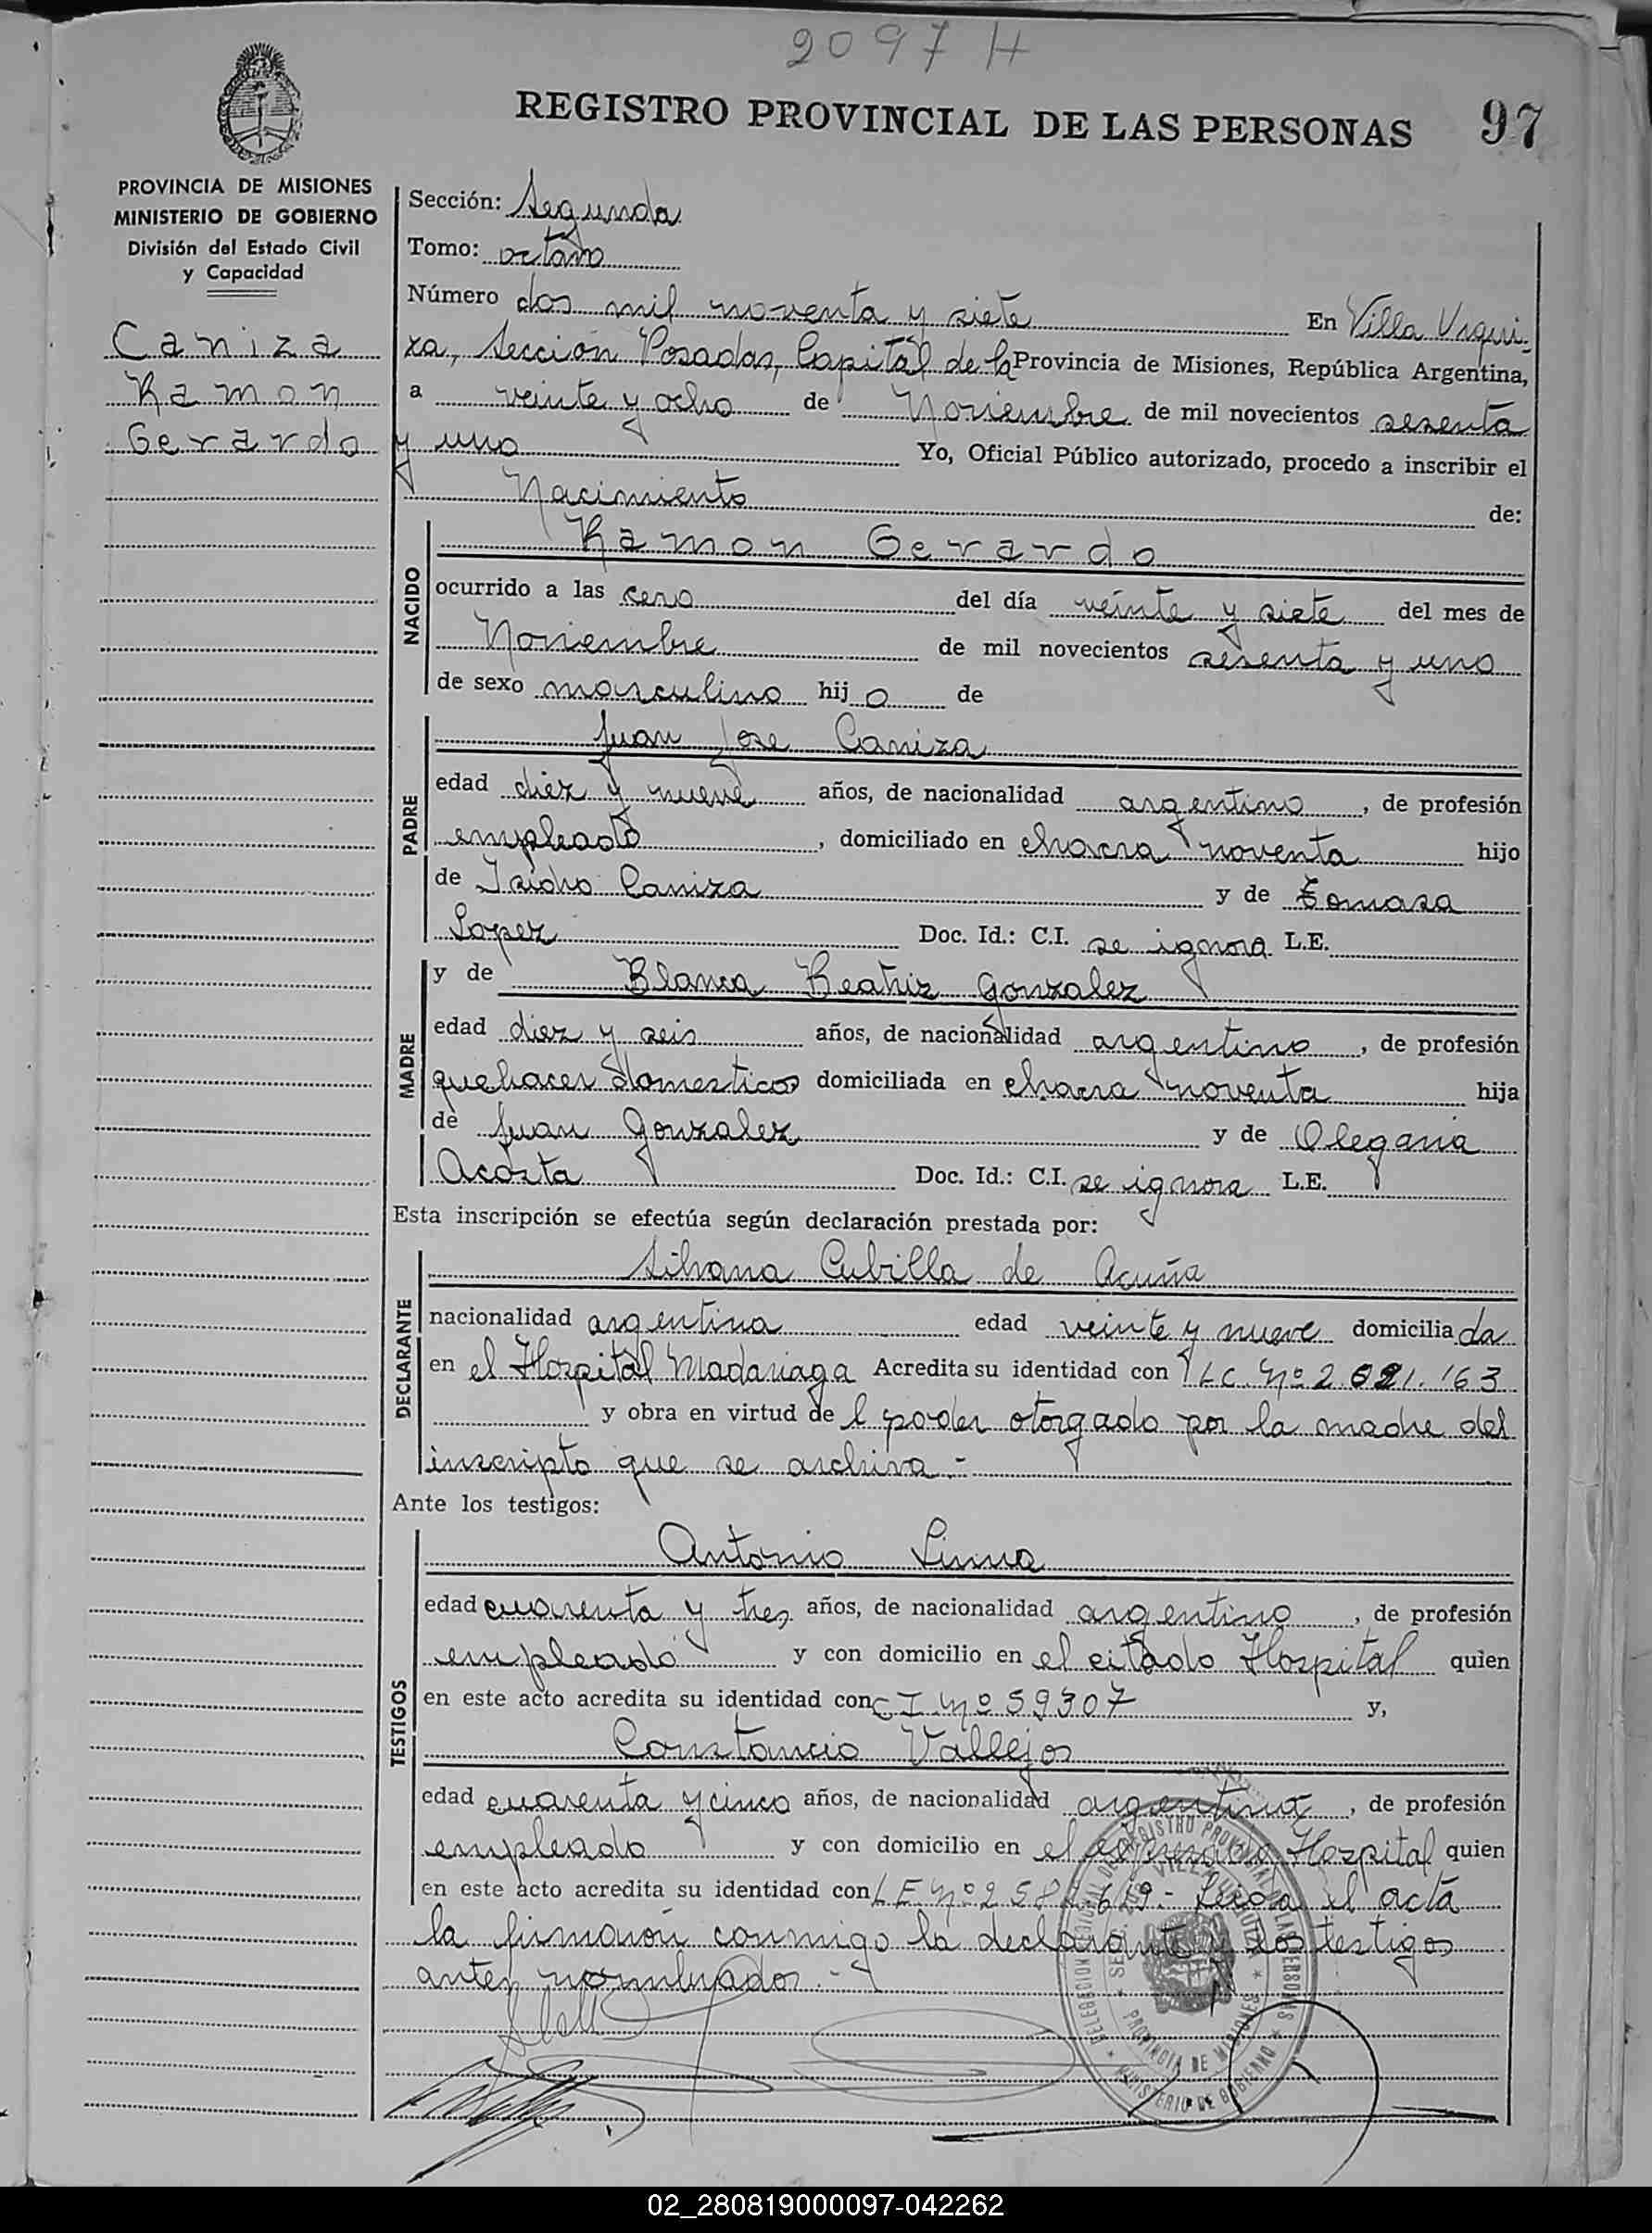 2097 H
REGISTRO PROVINCIAL DE LAS PERSONAS 97
PROVINCIA DE MISIONES
MINISTERIO DE GOBIERNO
División del Estado Civil
y Capacidad
Caniza
Ramon
Gerardo
Sección: Segunda
Tomo: octavo
Número dos mil noventa y siete En Villa Urqui-
za, Sección Posadas, Capital de la Provincia de Misiones, República Argentina,
a veinte y ocho de Noviembre de mil novecientos sesenta
y uno Yo, Oficial Público autorizado, procedo a inscribir el
Nacimiento de:
NACIDO
Ramon Gerardo
ocurrido a las cero del día veinte y siete del mes de
Noviembre de mil novecientos sesenta y uno
de sexo masculino hijo de
PADRE
Juan Jose Caniza
edad diez y nueve años, de nacionalidad argentino, de profesión
empleado, domiciliado en chacra noventa hijo
de Isidro Caniza y de Tomasa
Lopez Doc. Id.: C.I. se ignora L.E.
MADRE
y de Blanca Beatriz Gonzalez
edad diez y seis años, de nacionalidad argentino, de profesión
quehacer domesticos domiciliada en chacra noventa hija
de Juan Gonzalez y de Olegaria
Acosta Doc. Id.: C.I. se ignora L.E.
Esta inscripción se efectúa según declaración prestada por:
DECLARANTE
Silvana Cubilla de Acuña
nacionalidad argentina edad veinte y nueve domiciliada
en el Hospital Madariaga Acredita su identidad con LC. Nº
y obra en virtud del poder otorgado por la madre del
inscripto que se archiva.-
Ante los testigos:
TESTIGOS
Antonio
edad cuarenta y tres años, de nacionalidad argentino, de profesión
empleado y con domicilio en el citado Hospital quien
en este acto acredita su identidad con CI Nº 59307 y,
Constancio Vallejos
edad cuarenta y cinco años, de nacionalidad argentina, de profesión
empleado y con domicilio en el expresado Hospital quien
en este acto acredita su identidad con LE Nº Leida el acta
la firmaron conmigo la declarante y los testigos
antes nombrados.-
02_280819000097-042262